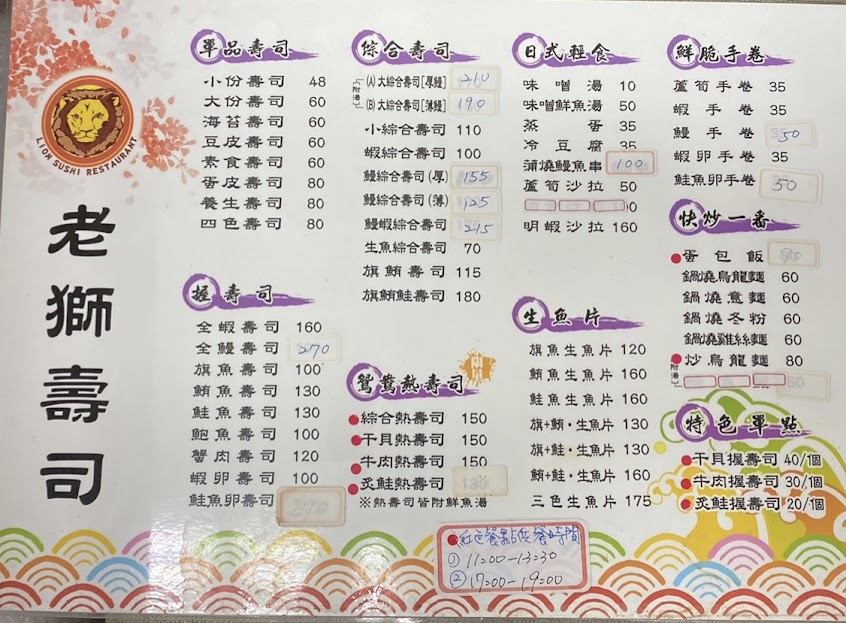 LION SUSHI RESTAURANT
老獅壽司
單品壽司
小份壽司 48
大份壽司 60
海苔壽司 60
豆皮壽司 60
素食壽司 60
蛋皮壽司 80
養生壽司 80
四色壽司 80
握壽司
全蝦壽司 160
全鰻壽司 270
旗魚壽司 100
鮪魚壽司 130
鮭魚壽司 130
鮑魚壽司 100
蟹肉壽司 120
蝦卵壽司 100
鮭魚卵壽司 290
綜合壽司
附湯
(A) 大綜合壽司[厚鰻] 210
(B) 大綜合壽司[薄鰻] 190
小綜合壽司 110
蝦綜合壽司 100
鰻綜合壽司(厚) 155
鰻綜合壽司(薄) 125
鰻蝦綜合壽司 215
生魚綜合壽司 70
旗鮪壽司 115
旗鮪鮭壽司 180
鴛鴦熱壽司
綜合熱壽司 150
干貝熱壽司 150
牛肉熱壽司 150
炙鮭熱壽司 180
※熱壽司皆附鮮魚湯
日式輕食
味噌湯 10
味噌鮮魚湯 50
蒸蛋 35
冷豆腐 35
蒲燒鰻魚串 100
蘆筍沙拉 50
明蝦沙拉 160
生魚片
旗魚生魚片 120
鮪魚生魚片 160
鮭魚生魚片 160
旗+鮪·生魚片 130
旗+鮭·生魚片 130
鮪+鮭·生魚片 160
三色生魚片 175
鮮脆手卷
蘆筍手卷 35
蝦手卷 35
鰻手卷 50
蝦卵手卷 35
鮭魚卵手卷 50
快炒一番
蛋包飯
鍋燒烏龍麵 60
鍋燒意麵 60
鍋燒冬粉 60
鍋燒雞絲麵 60
炒烏龍麵 80
附湯
特色單點
干貝握壽司 40/個
牛肉握壽司 30/個
炙鮭握壽司 20/個
紅色餐點供餐時間
① 11:00-13:30
② 17:00-19:00